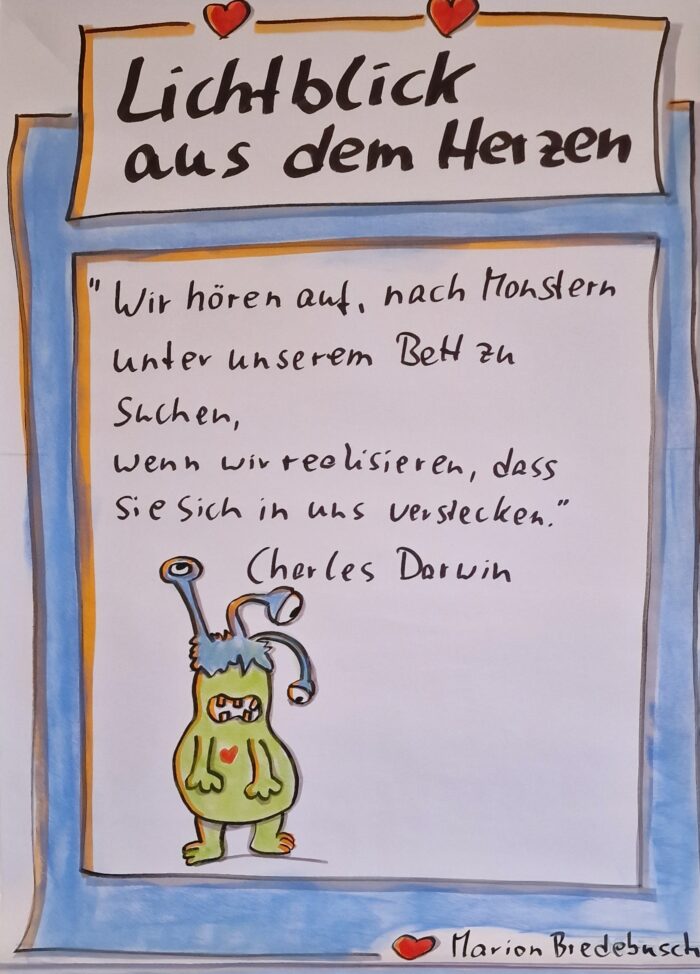 Lichtblick
aus dem Herzen
"Wir hören auf, nach Monstern
unter unserem Bett zu
Suchen,
wenn wir realisieren, dass
sie sich in uns verstecken."
Charles Darwin
Marion Bredebusch